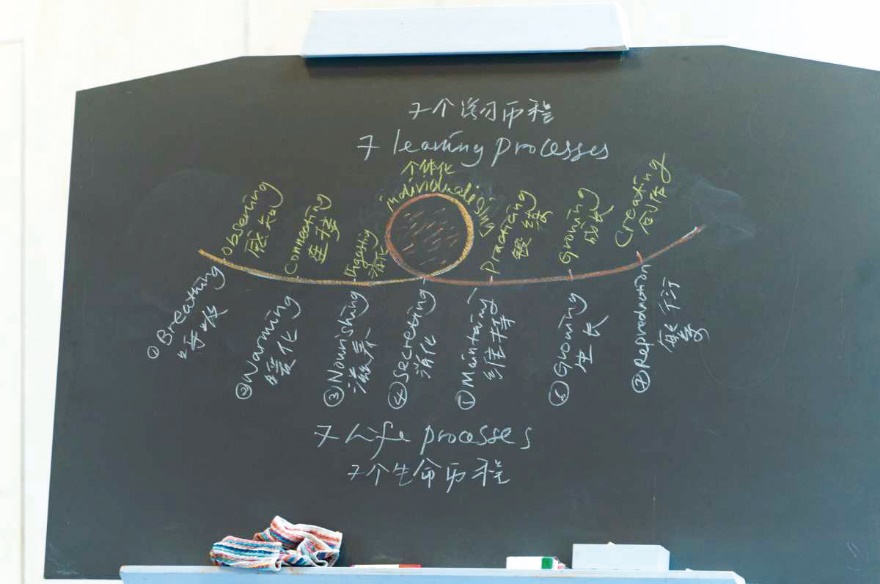 7个学习历程
7 learning processes
Observing
感知
Connecting
连接
Digesting
消化
个体化
individualising
Practicing
锻练
Growing
成长
Creating
创作
① Breathing
呼吸
② Warming
暖化
③ Nourishing
滋养
④ Secreting
消化
Maintaining
维持
⑥ Growing
生长
⑦ Reproduction
繁衍
7 Life processes
7个生命历程